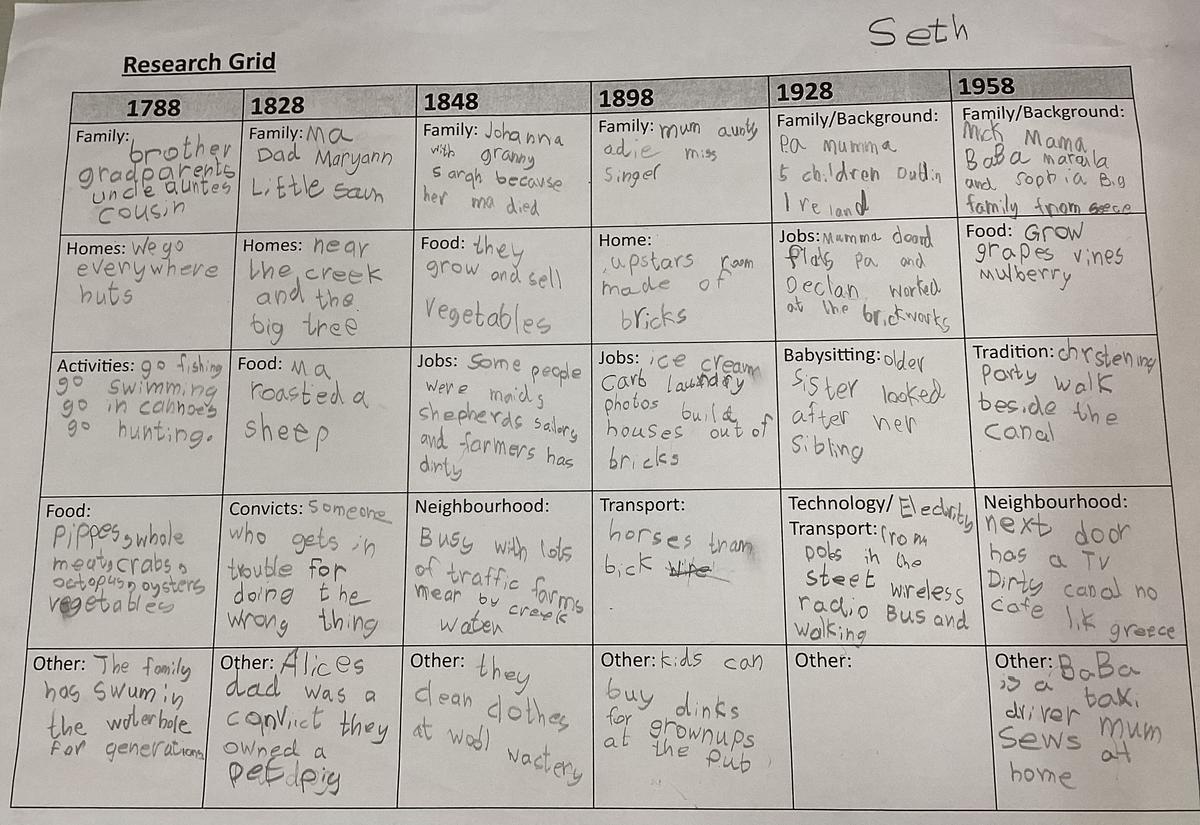 Seth
Research Grid
1788
1828
1848
1898
1928
1958
Family:
brother
gradparents
uncle auntes
cousin
Family: Ma
Dad Maryann
Little saun
Family: Johanna
with granny
sargh because
her ma died
Family: mum aunty
adie miss
Singer
Family/Background:
Pa mumma
5 children Dublin
Ireland
Family/Background:
Mick Mama
BaBa maraula
and sophia Big
family from
Homes: We go
everywhere
huts
Homes: near
the creek
and the
big tree
Food: they
grow and sell
vegetables
Home:
upstars room
made of
bricks
Jobs: Mamma
Pa and
Declan worked
at the brickworks
Food: Grow
grapes vines
mulberry
Activities: go fishing
go swimming
go in cannoe's
go hunting.
Food: Ma
roasted a
sheep
Jobs: Some people
were maids
shepherds salory
and farmers has
dirty
Jobs: ice cream
Carb laundry
photos build
houses out of
bricks
Babysitting: older
sister looked
after her
sibling
Tradition: chrstening
Party walk
beside the
canal
Food:
Pippes, whole
meat, crabs,
octopus, oysters
vegetables
Convicts: Someone
who gets in
trouble for
doing the
wrong thing
Neighbourhood:
Busy with lots
of traffic farms
near by creek
water
Transport:
horses tram
bick
Technology/ Eledrity
Transport: from
pols in the
steet wireless
radio Bus and
walking
Neighbourhood:
next door
has a TV
Dirty canal no
cafe lik greece
Other: The family
has swum in
the waterhole
for generations
Other: Alices
dad was a
convict they
owned a
pet
Other: they
clean clothes
at wool wastery
Other: kids can
buy dinks
for grownups
at the Pub
Other:
Other: BaBa
is a taxi
driver mum
Sews at
home